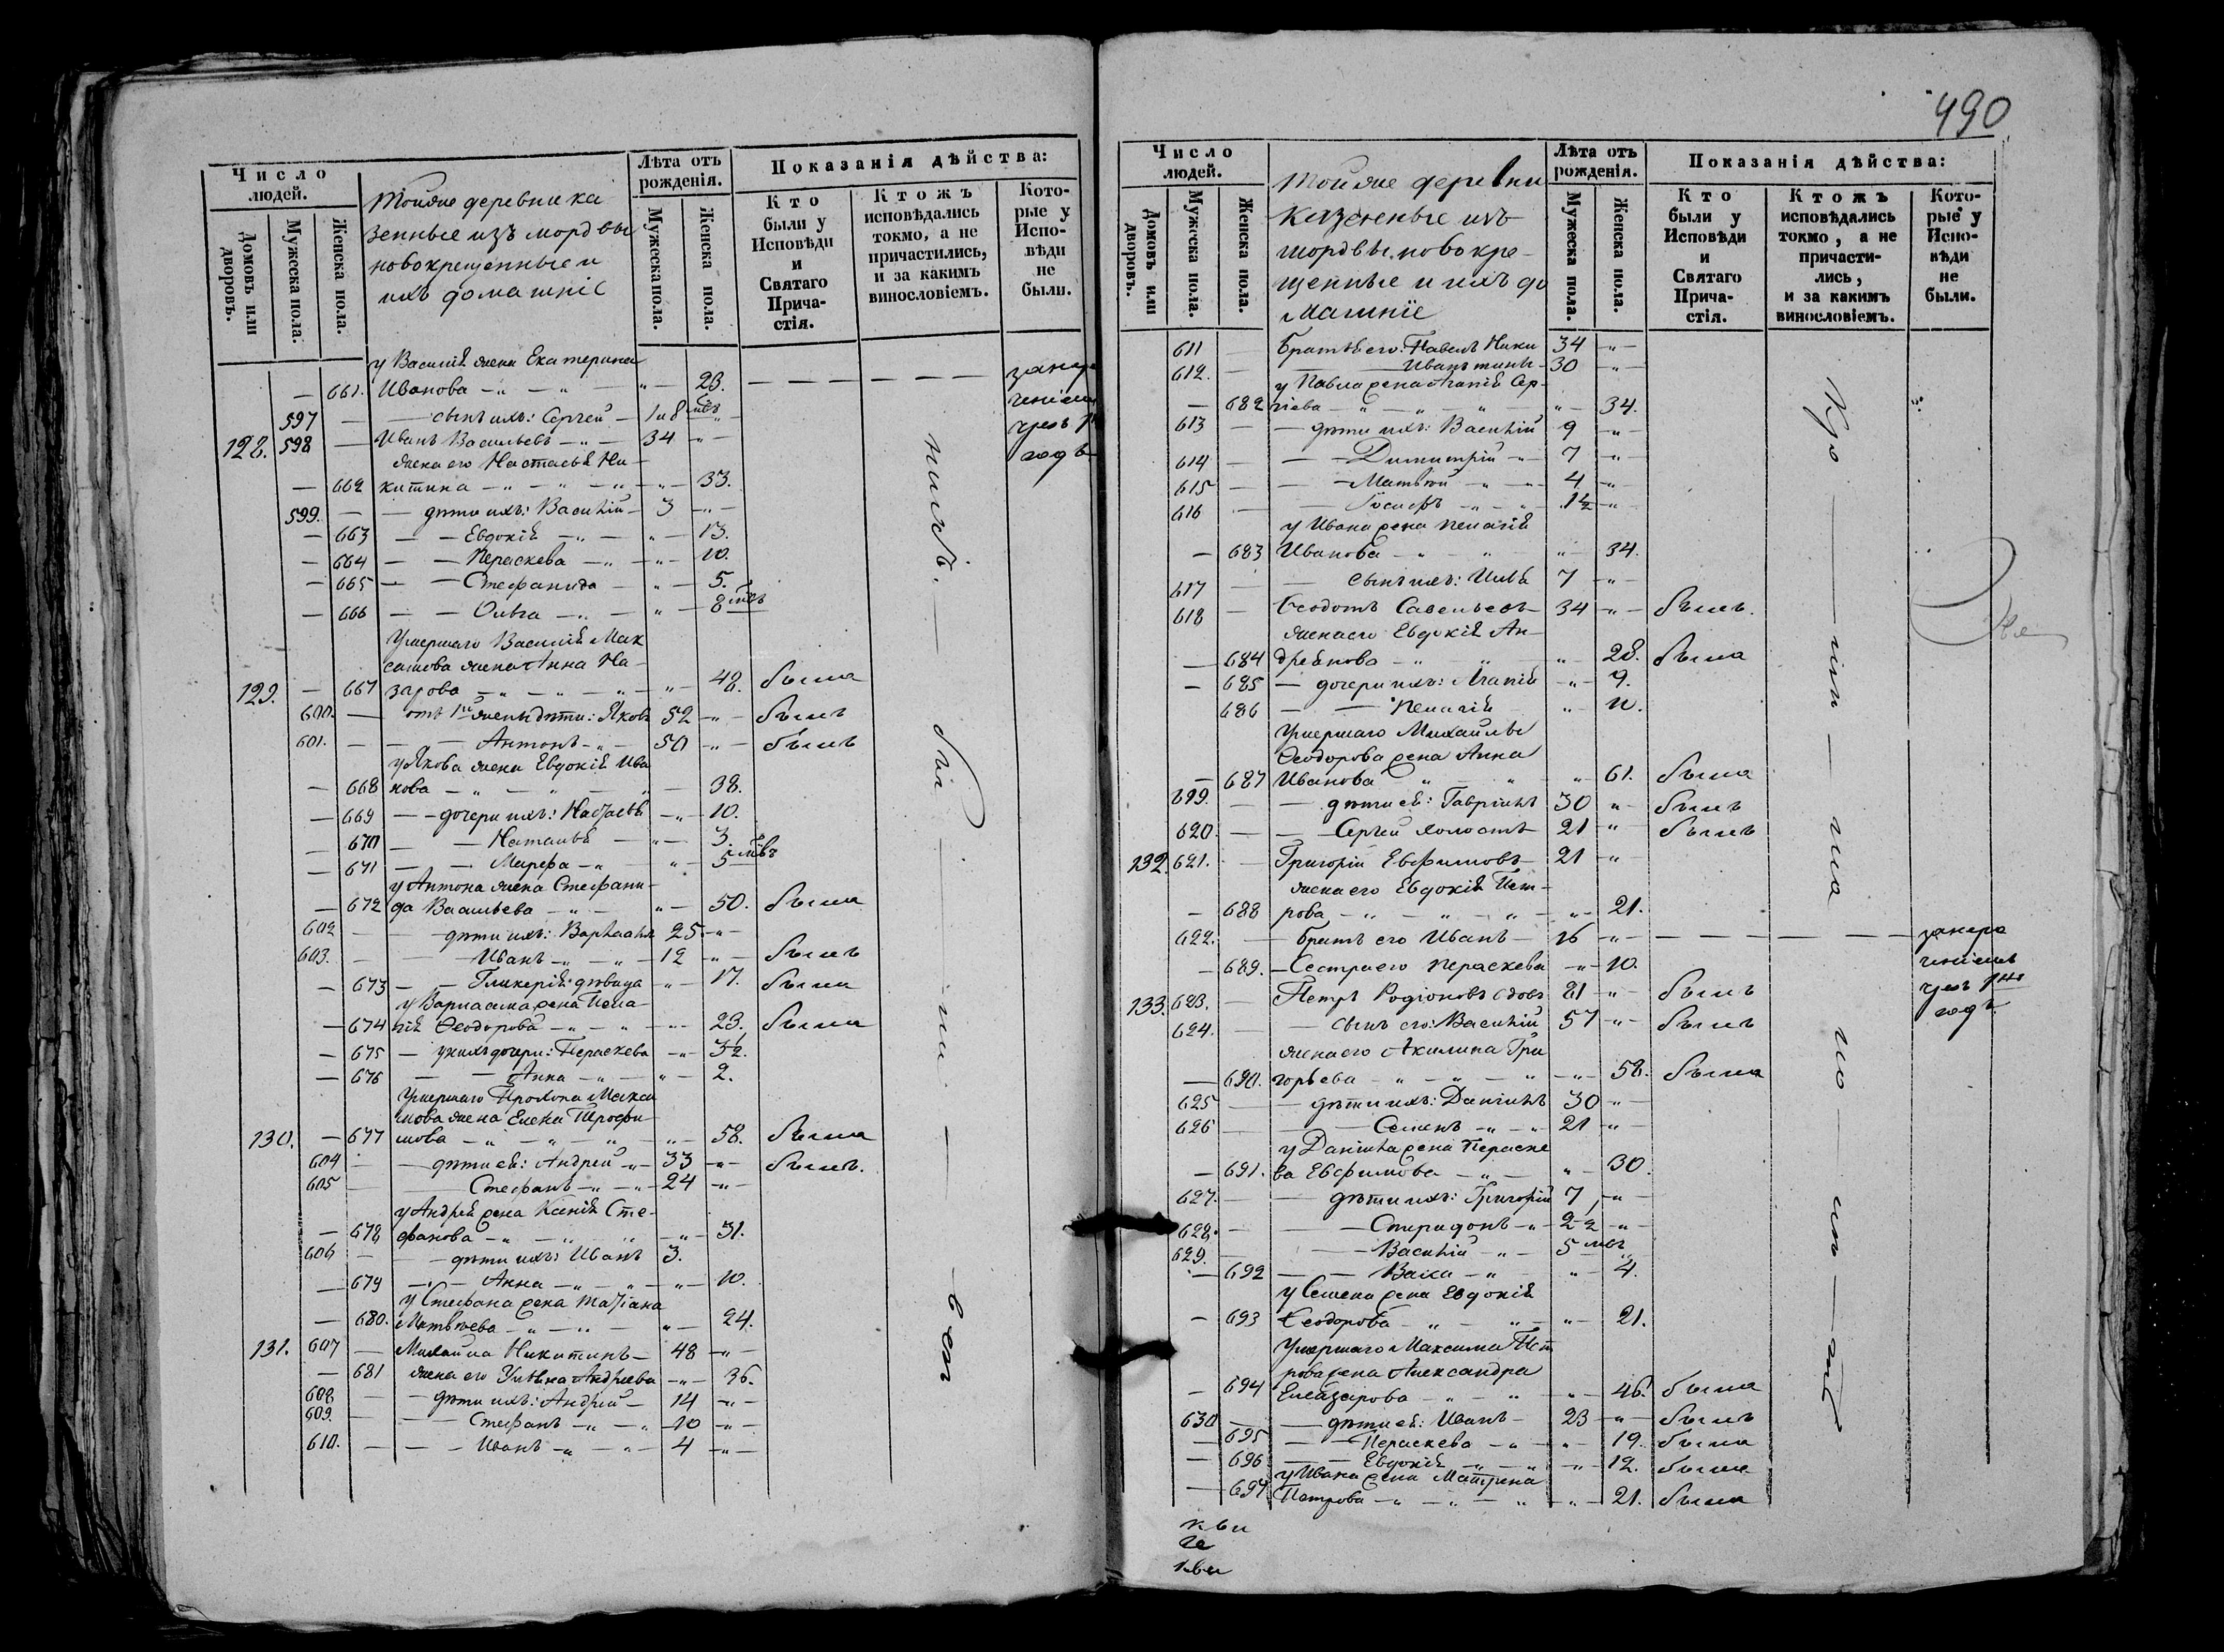 490
Число людей.
Домовъ или дворовъ.
Мужеска пола.
Женска пола.
Тойже деревни ка
зенные изъ мордвы
новокрещенные и
ихъ домашніе
Лѣта отъ рожденія.
Мужеска пола.
Женска пола.
Показанія дѣйства:
Кто были у Исповѣди и Святаго Прича-стія.
Ктожъ исповѣдались токмо, а не причастились, и за какимъ винословіемъ.
Кото-рые у Испо-вѣди не были.
у Василія жена Екатерина
661. Иванова 23.
597 сынъ ихъ: Сергей 1 и 8 мѣс
128. 598 Иванъ Васильевъ 34
жена его Настасья Ни-
662 китина 33.
599. дѣти ихъ: Василій 3
663 Евдокія 13.
664 Параскева 10.
665 Стефанида 5.
666 Ольга 8 мѣс
Умершаго Василія Мак
симова жена Анна На-
129. 667 зарова 48. была
600. отъ 1й жены дѣти: Яковъ 52 былъ
601. Антонъ 50 былъ
у Якова жена Евдокія Ива
668 нова 38.
669 дочери ихъ: Настасья 10.
670 Наталья 3.
671 Марфа 5 мѣс
у Антона жена Стефани-
672 да Васильева 50. была
602 дѣти ихъ: Варлаамъ 25
603. Иванъ 12 былъ
673 Гликерія дѣвица 17. была
у Варлаама жена Пела-
674 гія Ѳеодорова 23. была
675 у нихъ дочери: Параскева 3½.
676 Анна 2.
Умершаго Прохора Макси
мова жена Елена Трофи-
130. 677 мова 58. была
604 дѣти ея: Андрей 33 былъ.
605 Стефанъ 24
у Андрея жена Ксенія Сте-
678 фанова 31.
606 дѣти ихъ: Иванъ 3.
679 Анна 10.
у Стефана жена Татіана
680. Матвѣева 24.
131. 607 Михайла Никитинъ 48
681 жена его Ульяна Андреева 36.
608 дѣти ихъ: Андрей 14
609. Стефанъ 10
610. Иванъ 4
занера
ченіемъ
чрез 1
годъ
Число людей.
Домовъ или дворовъ.
Мужеска пола.
Женска пола.
Тойже деревни
казенные изъ
мордвы новокре-
щенные и ихъ до
машніе
Лѣта отъ рожденія.
Мужеска пола.
Женска пола.
Показанія дѣйства:
Кто были у Исповѣди и Святаго Прича-стія.
Ктожъ исповѣдались токмо, а не причасти-лись, и за какимъ винословіемъ.
Кото-рые у Испо-вѣди не были.
611 братья его: Павелъ Ники 34
612. Иванъ тины 30
у Павла жена Агапія Сер-
682 гіева 34.
613 дѣти ихъ: Василій 9
614 Димитрій 7
615 Матвѣй 4
616 Іосифъ 1½
у Ивана жена Пелагія
683 Иванова 34.
617 сынъ ихъ: Илья 7
618 Ѳеодотъ Савельевъ 34 былъ.
жена его Евдокія Ан-
684 дреянова 28. была
685 дочери ихъ: Агапія 9.
686 Пелагія 10.
Умершаго Михайлы
Ѳеодорова жена Анна
687 Иванова 61. была
699. дѣти ея: Гавріилъ 30 былъ
620. Сергей холостъ 21 былъ
132. 621. Григорій Евфимовъ 21
жена его Евдокія Пет-
688 рова 21.
622. братъ его Иванъ 16 занера
689. Сестра его Параскева 10. ченіемъ
133. 623. Петръ Родіоновъ вдовъ 81 былъ чрез 1ин
624. сынъ его: Василій 57 былъ годъ
жена его Акилина Гри
690. горьева 58. была
625 дѣти ихъ: Даніилъ 30
626 Семенъ 21
у Даніила жена Параске
691. ва Евфимова 30.
627. дѣти ихъ: Григорій 7
628. Спиридонъ 2½
629. Василій 5 мѣс
692 Васса 4.
у Семена жена Евдокія
693 Ѳеодорова 21.
Умершаго Максима Пет
рова жена Александра
694 Елеазарова 46. была
630 дѣти ея: Иванъ 23 былъ
695 Параскева 19. была
696 Евдокія 12. была
у Ивана жена Матрена
697 Петрова 21. была